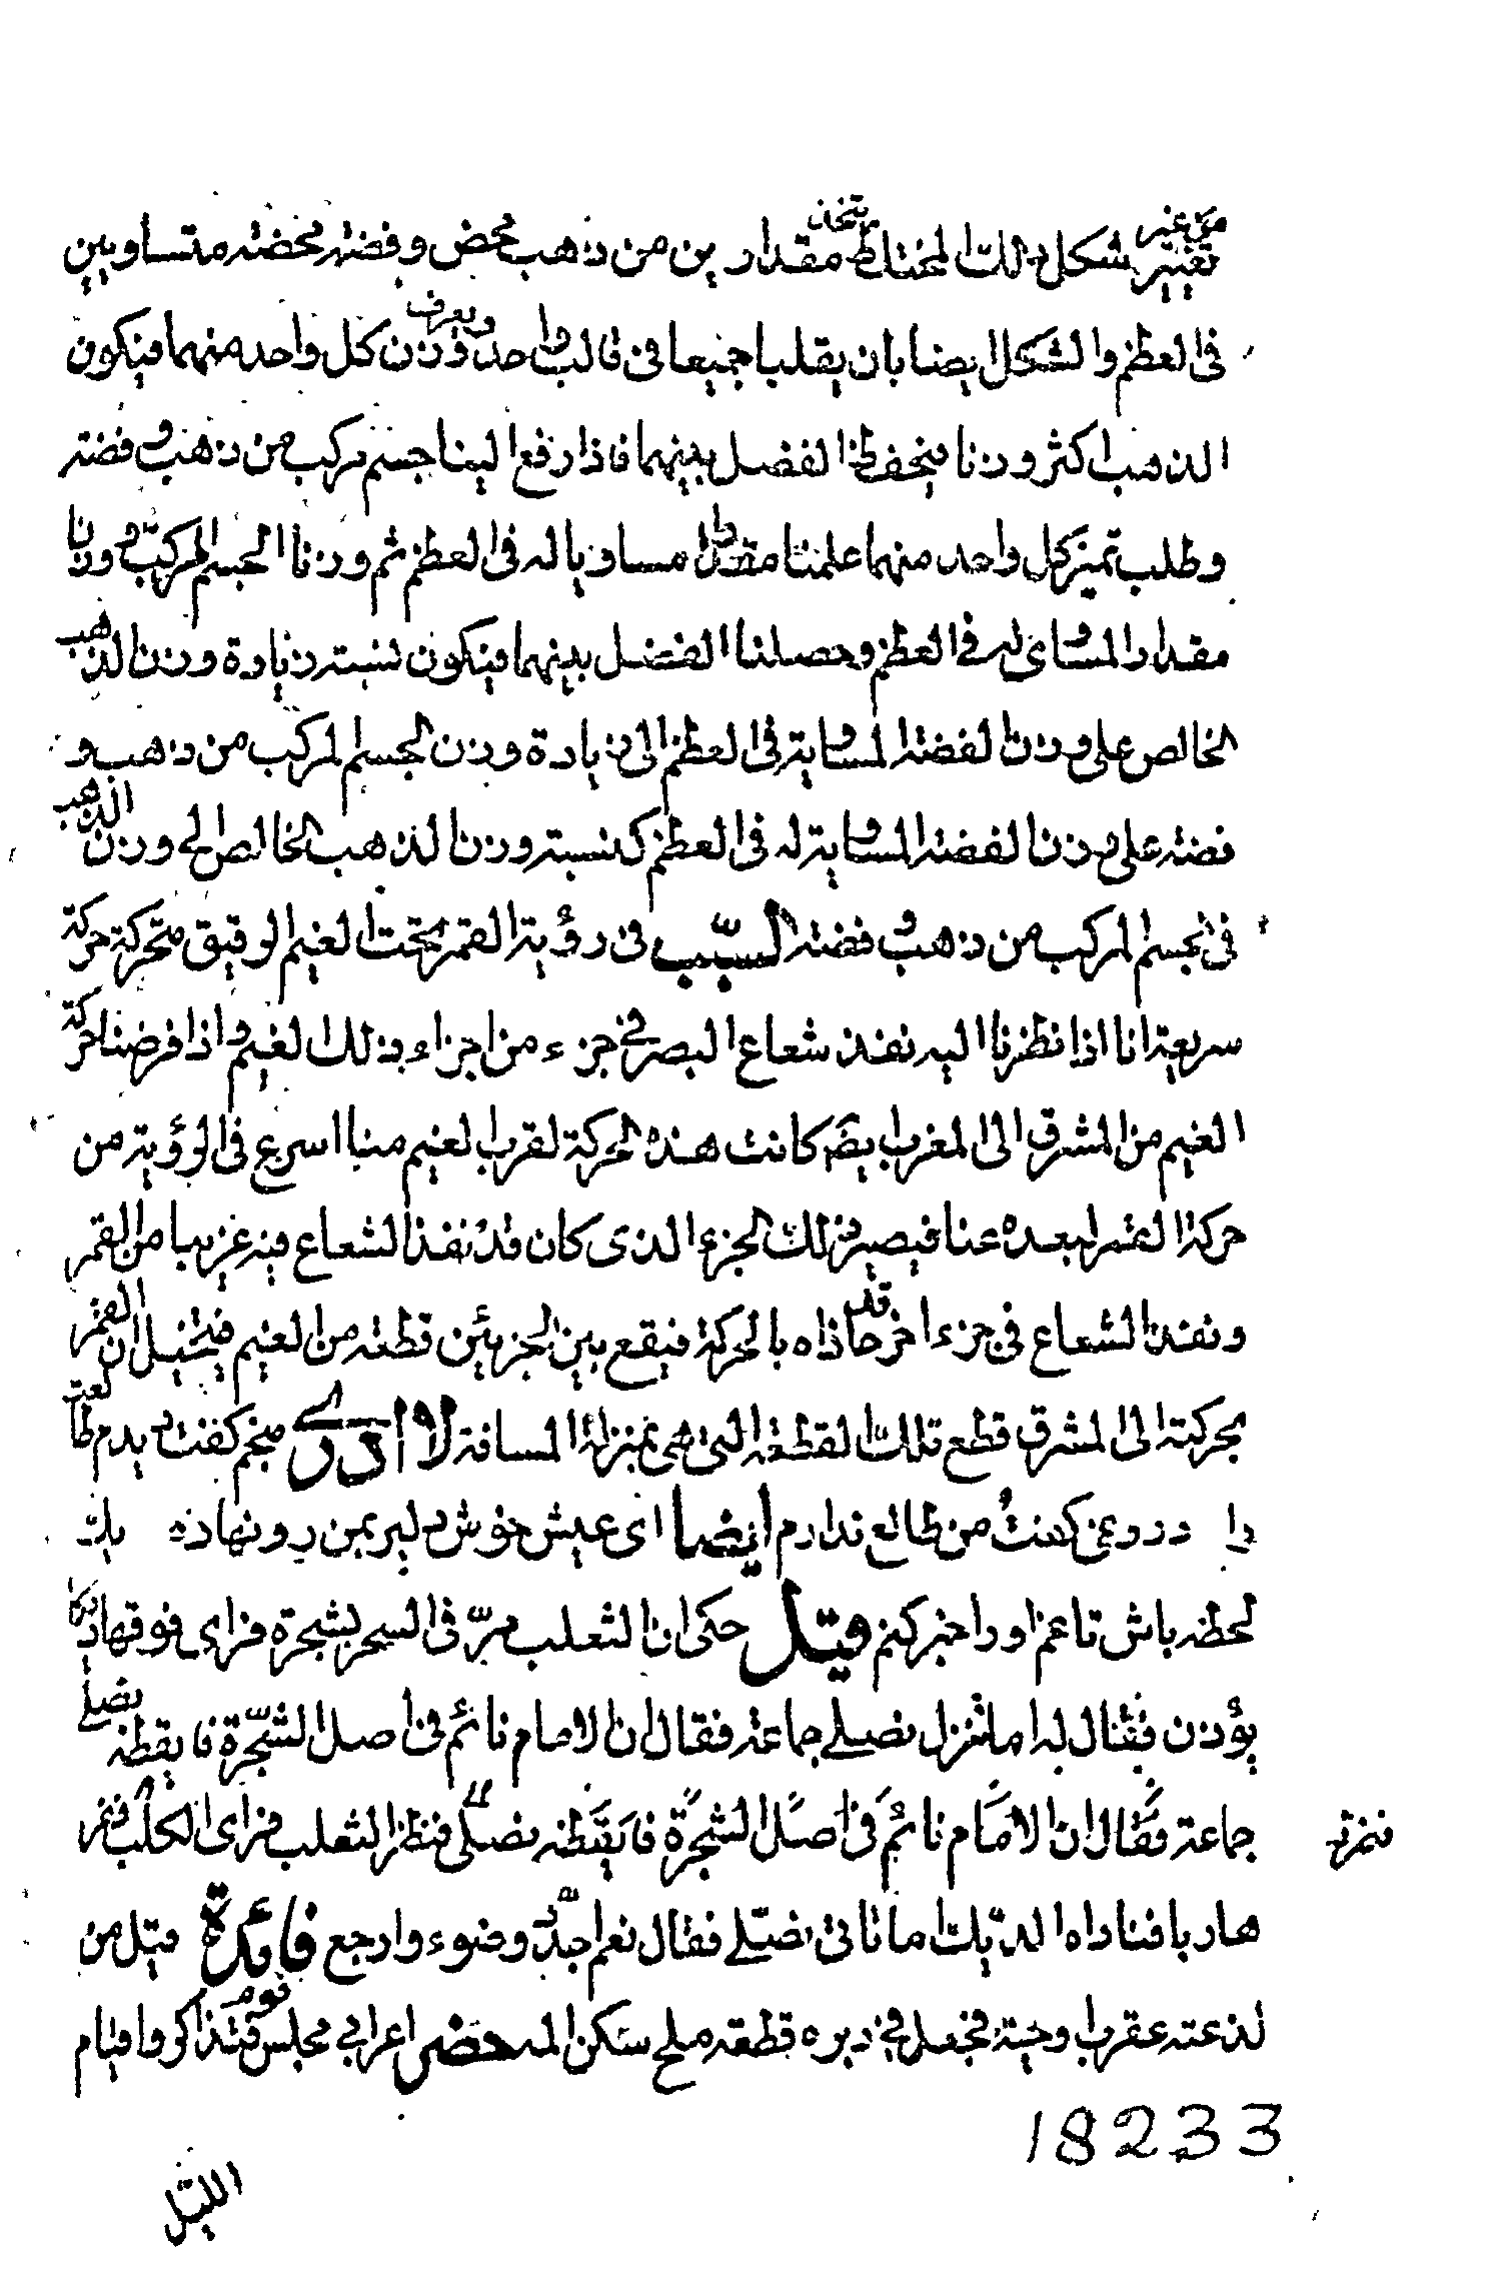 من غير تغيير شكل ذلك المختلط يتخذ مقدارين من ذهب محض وفضة محضة متساويين
في العظم والشكل ايضا بان يقلبا جميعا في قالب واحد ويعرف وزن كل واحد منهما فيكون
الذهب اكثر وزنا فيحفظ الفضل بينهما فاذا رفع الينا جسم مركب من ذهب و فضة
وطلب تميز كل واحد منهما علمنا مقدارا مساويا له في العظم ثم وزنا الجسم المركب و وزنا
مقدار المساوى له في العظم وحصلنا الفضل بينهما فيكون نسبة زيادة وزن الذهب
الخالص على وزن الفضة المساوية في العظم الى زيادة وزن الجسم المركب من ذهب و
فضة على وزن الفضة المساوية له في العظم كنسبة وزن الذهب الخالص الى وزن الذهب
في الجسم المركب من ذهب و فضة السبب في رؤية القمر تحت الغيم الرقيق متحركة حركة
سريعة انا اذا نظرنا اليه نفذ شعاع البصر في جزء من اجزاء ذلك الغيم و اذا فرضنا حركة
الغيم من المشرق الى المغرب ايضا كانت هذه الحركة لقرب الغيم منا اسرع في الرؤية من
حركة القمر لبعده عنا فيصير ذلك الجزء الذى كان قد نفذ الشعاع فيه غربيا من القمر
ونفذ الشعاع في جزء اخر قد حاذاه بالحركة فيقع بين الجزئين قطعة من الغيم فيتخيل ان القمر
بحركته الى المشرق قطع تلك القطعة التى هى بمنزلة المسافة لا ادرى منجم گفت ديدم طالعت
را دروغى گفت من طالع ندارم ايضا اى عيش خوش دلبر بمن رو نهاده يك
لحظه باش تا غم او را خبر كنم قيل حكى ان الثعلب مرّ في السحر بشجرة فراى فوقها ديكا
يؤذن فقال له اما تنزل نصلى جماعة فقال ان الامام نائم في اصل الشجرة فايقظه نصلى
جماعة فقال ان الامام نائم في اصل الشجرة فايقظه نصلى فنظر الثعلب فراى الكلب فمر
فنزته
هاربا فناداه الديك ما تاتى نصلى فقال نعم اجدد وضوء وارجع فائدة قيل من
لذعته عقرب او حية فجعل في دبره قطعة ملح سكن الم حضر اعرابى مجلس قوم فتذاكروا قيام
18233
الليل